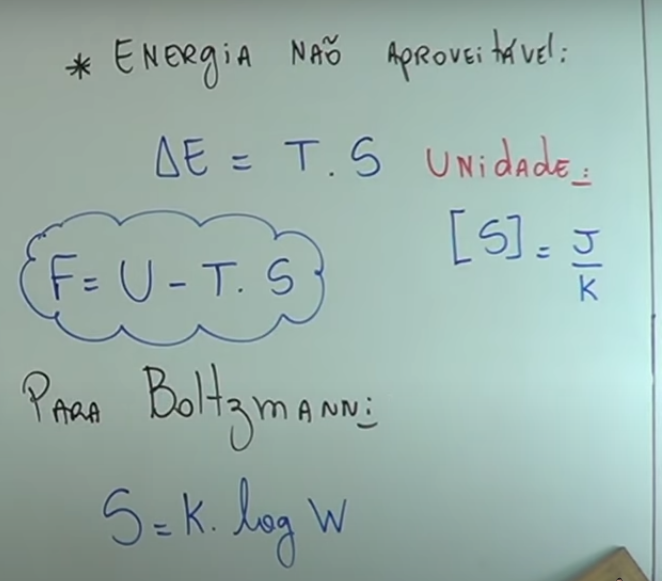 * ENERGIA NÃO APROVEITÁVEL:
ΔE = T. S UNIDADE:
[S] = J/K
F = U - T. S
PARA BOLTZMANN:
S = K. log W